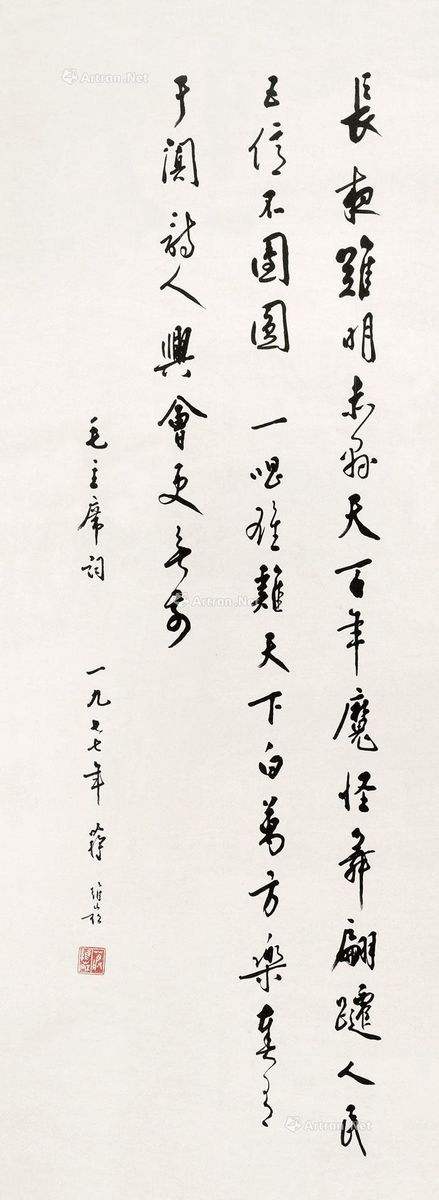 長夜難明赤縣天百年魔怪舞翩躚人民
五億不團圓 一唱雄雞天下白萬方樂奏有
于闐詩人興會更無前
毛主席詞 一九七七年 蔣維崧
Artron.Net
Artron.Net
Artron.Net